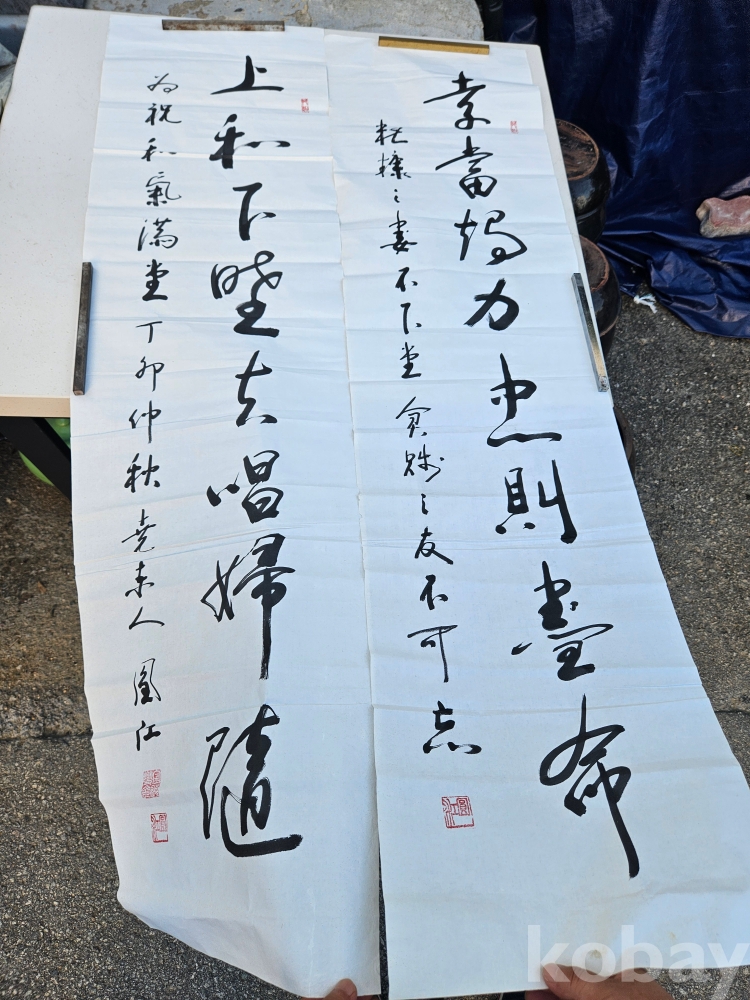 孝當竭力忠則盡命
糟糠之妻不下堂 貧賤之友不可忘
上和下睦夫唱婦隨
為祝和氣滿堂 丁卯仲秋 人 江
kobay